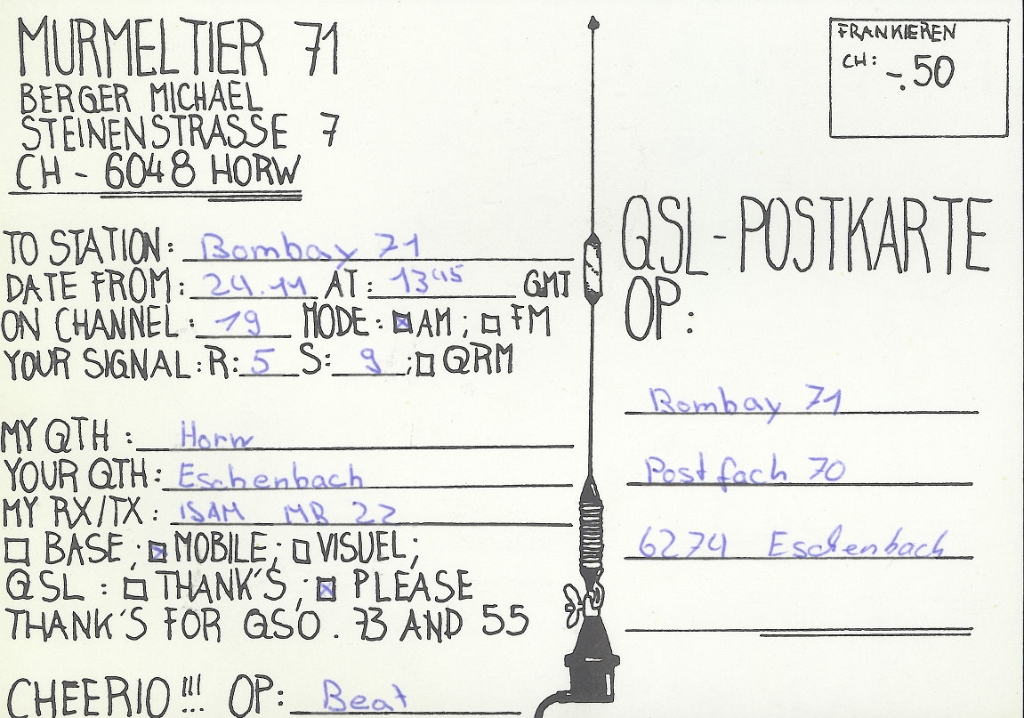 MURMELTIER 71
BERGER MICHAEL
STEINENSTRASSE 7
CH - 6048 HORW
TO STATION: Bombay 71
DATE FROM: 24.11 AT: 13⁴⁵ GMT
ON CHANNEL: 19 MODE: ☒ AM; ☐ FM
YOUR SIGNAL: R: 5 S: 9; ☐ QRM
MY QTH: Horw
YOUR QTH: Eschenbach
MY RX/TX: ISAM MB 22
☐ BASE; ☒ MOBILE; ☐ VISUEL;
QSL: ☐ THANK'S; ☒ PLEASE
THANK'S FOR QSO. 73 AND 55
CHEERIO!!! OP: Beat
FRANKIEREN
CH: -.50
QSL - POSTKARTE
OP:
Bombay 71
Postfach 70
6274 Eschenbach